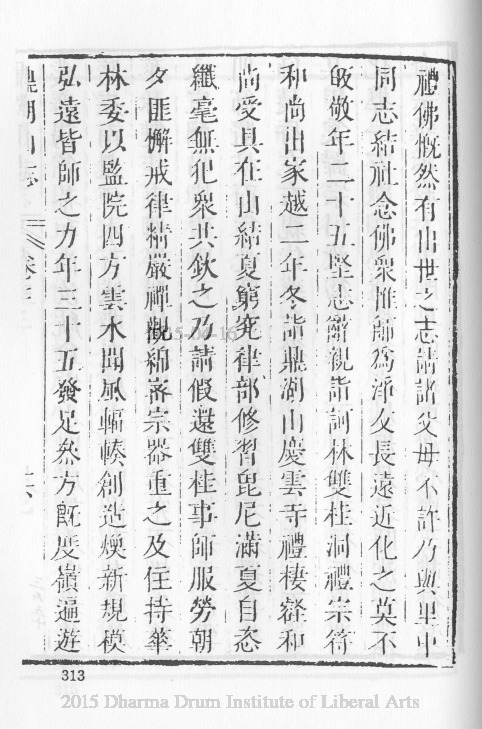 禮佛慨然有出世之志請諸父母不許乃與里中
同志結社念佛衆惟師爲淨友長遠近化之莫不
皈敬年二十五堅志辭親詣訶林雙桂洞禮宗符
和尚出家越二年冬詣鼎湖山慶雲寺禮棲壑和
尚受具在山結夏窮究律部修習毘尼滿夏自恣
纖毫無犯衆共欽之乃請假還雙桂事師服勞朝
夕匪懈戒律精嚴禪觀綿密宗器重之及住持華
林委以監院四方雲水聞風輻輳創造煥新規模
弘遠皆師之力年三十五發足叅方旣度嶺遍遊
鼎湖山志 卷二
313
2015 Dharma Drum Institute of Liberal Arts